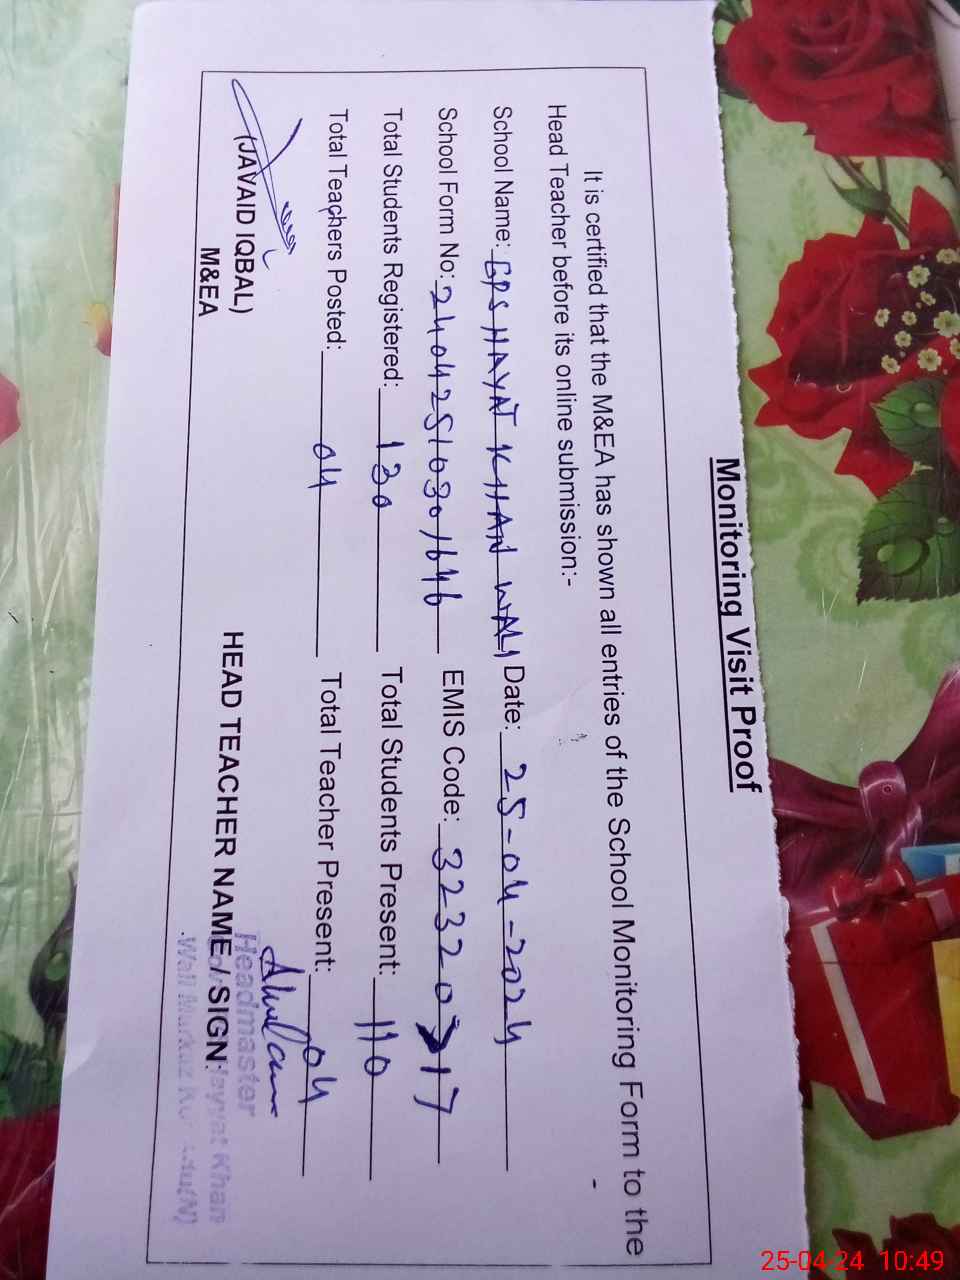 Monitoring Visit Proof
It is certified that the M&EA has shown all entries of the School Monitoring Form to the
Head Teacher before its online submission:-
School Name: GPS HAYAT KHAN WALI Date: 25-04-2024
School Form No: 24042510301646 EMIS Code: 32320717
Total Students Registered: 130 Total Students Present: 110
Total Teachers Posted: 04 Total Teacher Present: 04
(JAVAID IQBAL)
M&EA
HEAD TEACHER NAME / SIGN:
Headmaster
Hayyat Khan
Wali Markaz
25-04-24 10:49